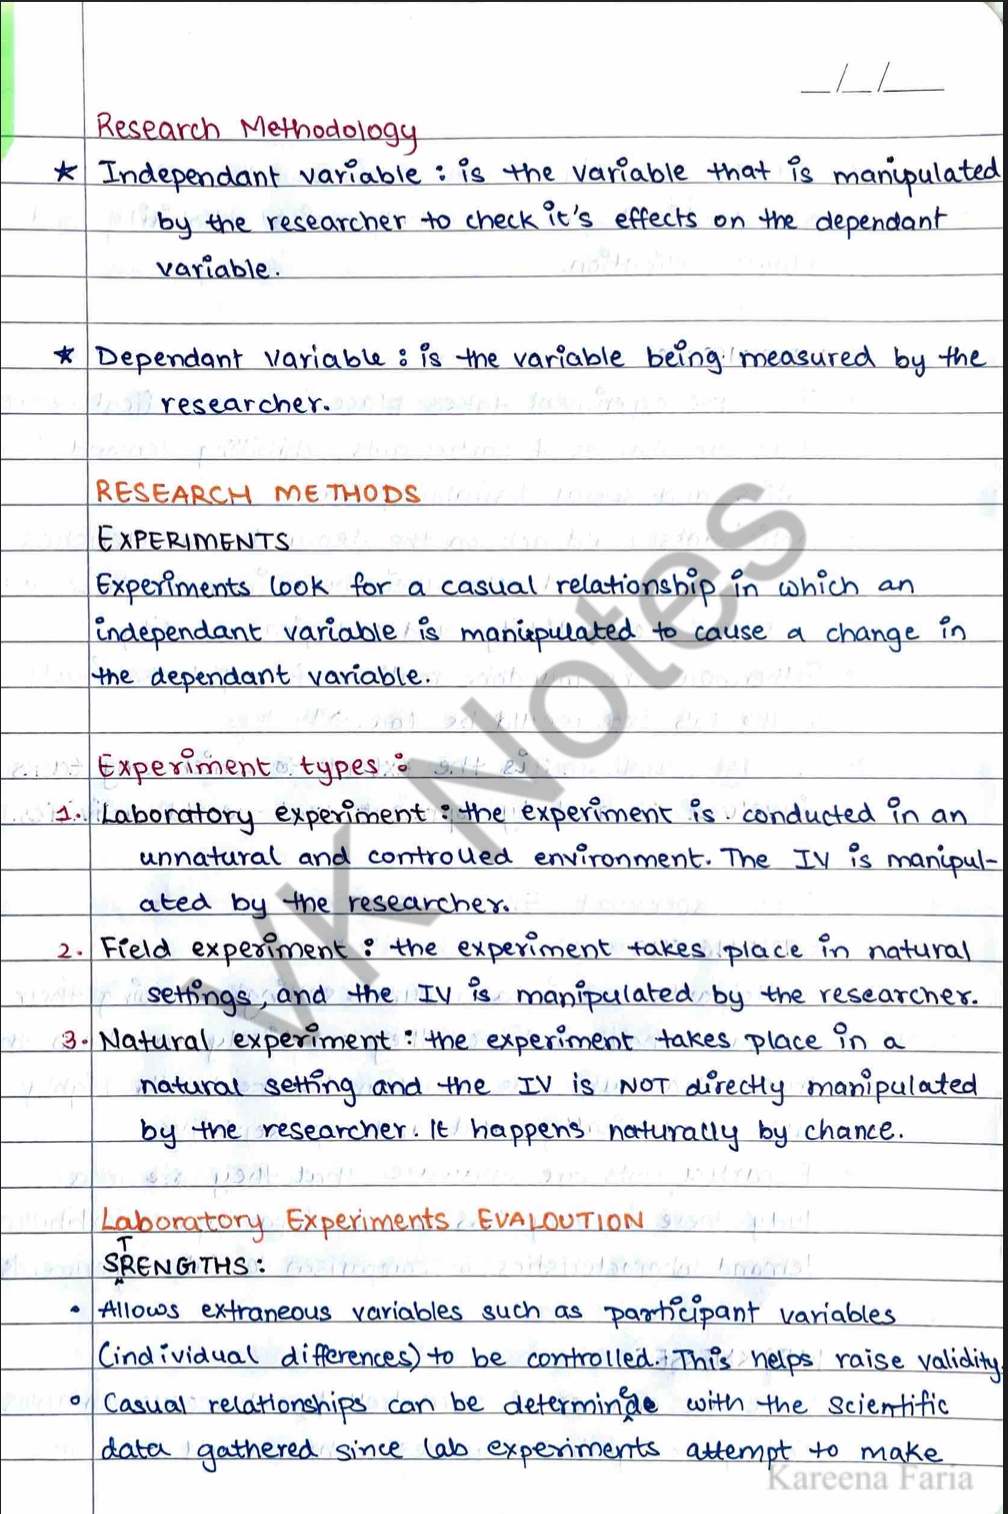 _/_/__
Research Methodology
★ Independant variable : is the variable that is manipulated
by the researcher to check it's effects on the dependant
variable.
★ Dependant variable : is the variable being measured by the
researcher.
RESEARCH METHODS
EXPERIMENTS
Experiments look for a casual relationship in which an
independant variable is manipulated to cause a change in
the dependant variable.
Experiment types :
1. Laboratory experiment : the experiment is conducted in an
unnatural and controlled environment. The IV is manipul-
ated by the researcher.
2. Field experiment : the experiment takes place in natural
settings, and the IV is manipulated by the researcher.
3. Natural experiment : the experiment takes place in a
natural setting and the IV is NOT directly manipulated
by the researcher. It happens naturally by chance.
Laboratory Experiments EVALOUTION
STRENGTHS :
• Allows extraneous variables such as participant variables
(individual differences) to be controlled. This helps raise validity.
• Casual relationships can be determine with the scientific
data gathered since lab experiments attempt to make
VK Notes
Kareena Faria